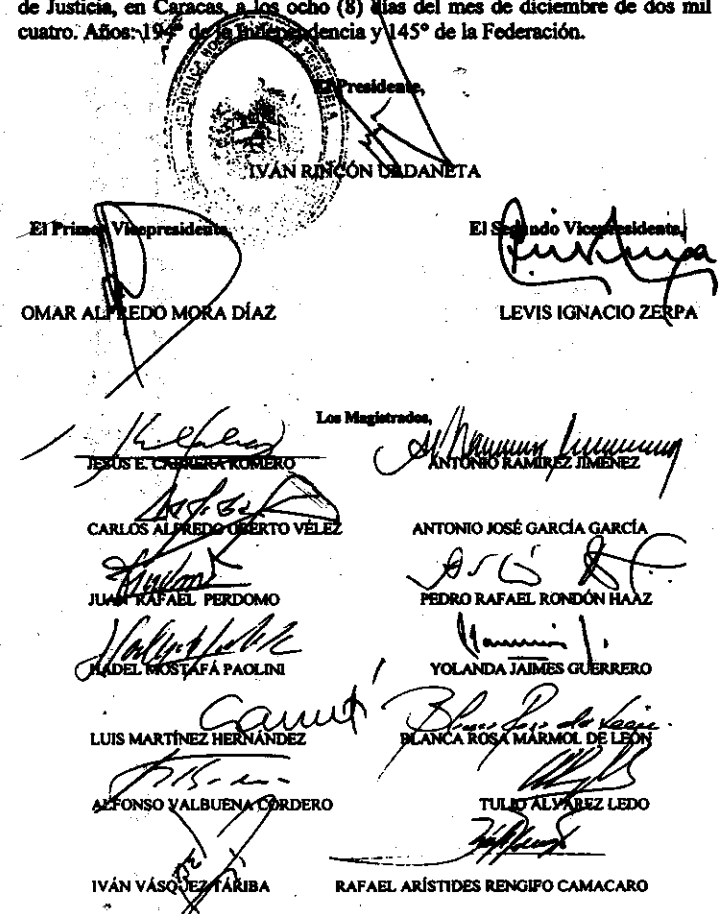 de Justicia, en Caracas, a los ocho (8) días del mes de diciembre de dos mil
cuatro. Años: 194° de la Independencia y 145° de la Federación.
El Presidente,
IVÁN RINCÓN URDANETA
El Primer Vicepresidente,
El Segundo Vicepresidente,
OMAR ALFREDO MORA DÍAZ
LEVIS IGNACIO ZERPA
Los Magistrados,
JESÚS E. CABRERA ROMERO
ANTONIO RAMÍREZ JIMÉNEZ
CARLOS ALFREDO OBERTO VÉLEZ
ANTONIO JOSÉ GARCÍA GARCÍA
JUAN RAFAEL PERDOMO
PEDRO RAFAEL RONDÓN HAAZ
HADEL MOSTAFÁ PAOLINI
YOLANDA JAIMES GUERRERO
LUIS MARTÍNEZ HERNÁNDEZ
BLANCA ROSA MÁRMOL DE LEÓN
ALFONSO VALBUENA CORDERO
TULIO ALVAREZ LEDO
IVÁN VÁSQUEZ TÁRIBA
RAFAEL ARÍSTIDES RENGIFO CAMACARO